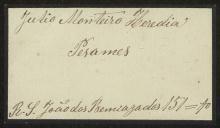 Julio Monteiro Heredia
Pesames
R. S. João dos Bemcazados 151 = 1º